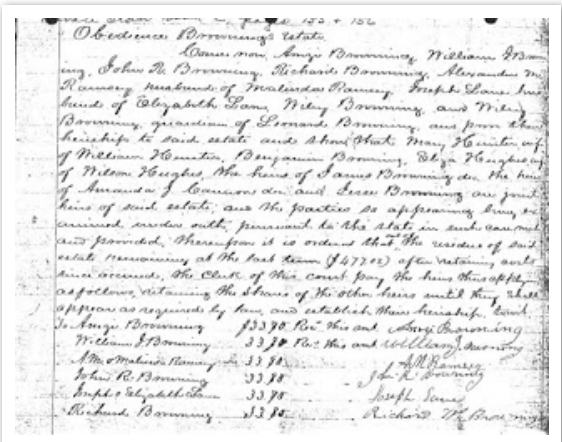 pages 155 & 156
Obedience Browning's estate.
Comes now, Amzi Browning, William J Brown
ing, John R. Browning, Richard Browning, Alexander M.
Ramsey husband of Malinda Ramsey, Joseph Lane hus
band of Elizabeth Lane, Wiley Browning, and Wiley
Browning, guardian of Leonard Browning, and prove their
heirship to said estate and show that Mary Hunter wife
of William Hunter, Benjamin Browning, Eliza Hughes, wife
of Wilson Hughes, the heirs of James Browning dec. the heirs
of Amanda J. dec. and Jesse Browning are joint
heirs of said estate, and the parties so appearing being ex
amined under oath, pursuant to the statute in such case made
and provided, thereupon it is ordered that the residue of said
estate remaining at the last term after retaining costs
since accrued, the Clerk of this court pay the heirs thus
as follows, retaining the shares of the other heirs until they shall
appear as required by law, and establish their heirship.
To Amzi Browning $33.90 Rec. this and Amzi Browning
William J Browning 33.90 Rec. this and William J. Browning
A.M. & Malinda Ramsey 33.90 A M Ramsey
John R. Browning 33.90 J R Browning
Joseph & Elizabeth Lane 33.90 Joseph Lane
Richard Browning 33.90 Richard Browning